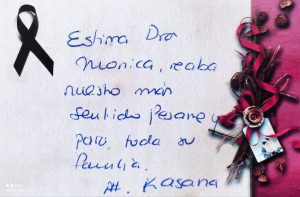 Estima Dra
Monica, reciba
nuestro más
sentido Pesame
para toda su
familia.
Att. Kasana